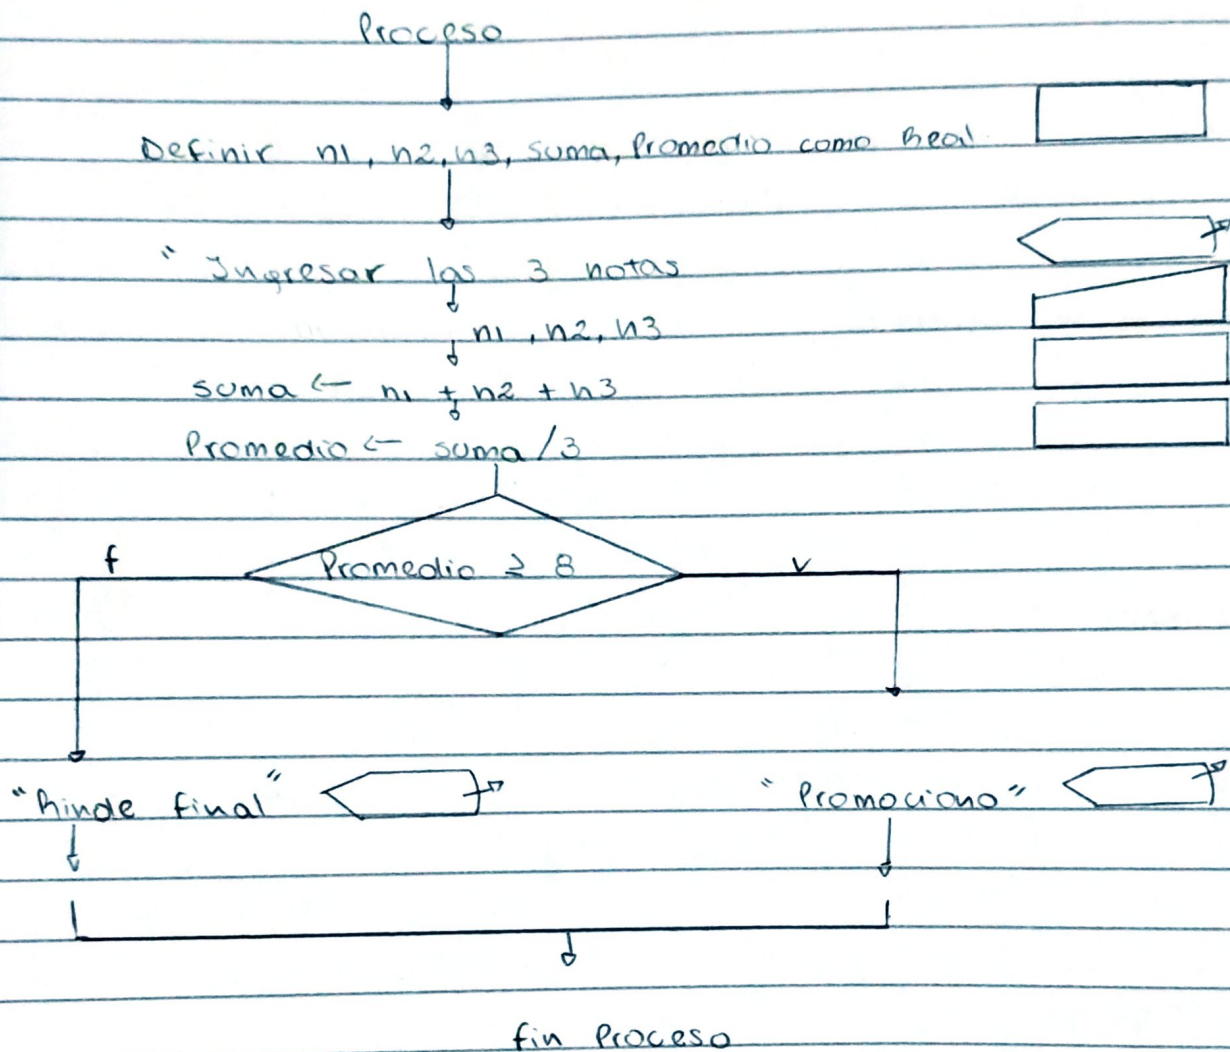 Proceso
Definir n1, n2, n3, suma, Promedio como Real
" Ingresar las 3 notas
n1, n2, n3
suma ← n1 + n2 + n3
Promedio ← suma / 3
f
Promedio ≥ 8
v
"Rinde final"
"Promociono"
fin Proceso